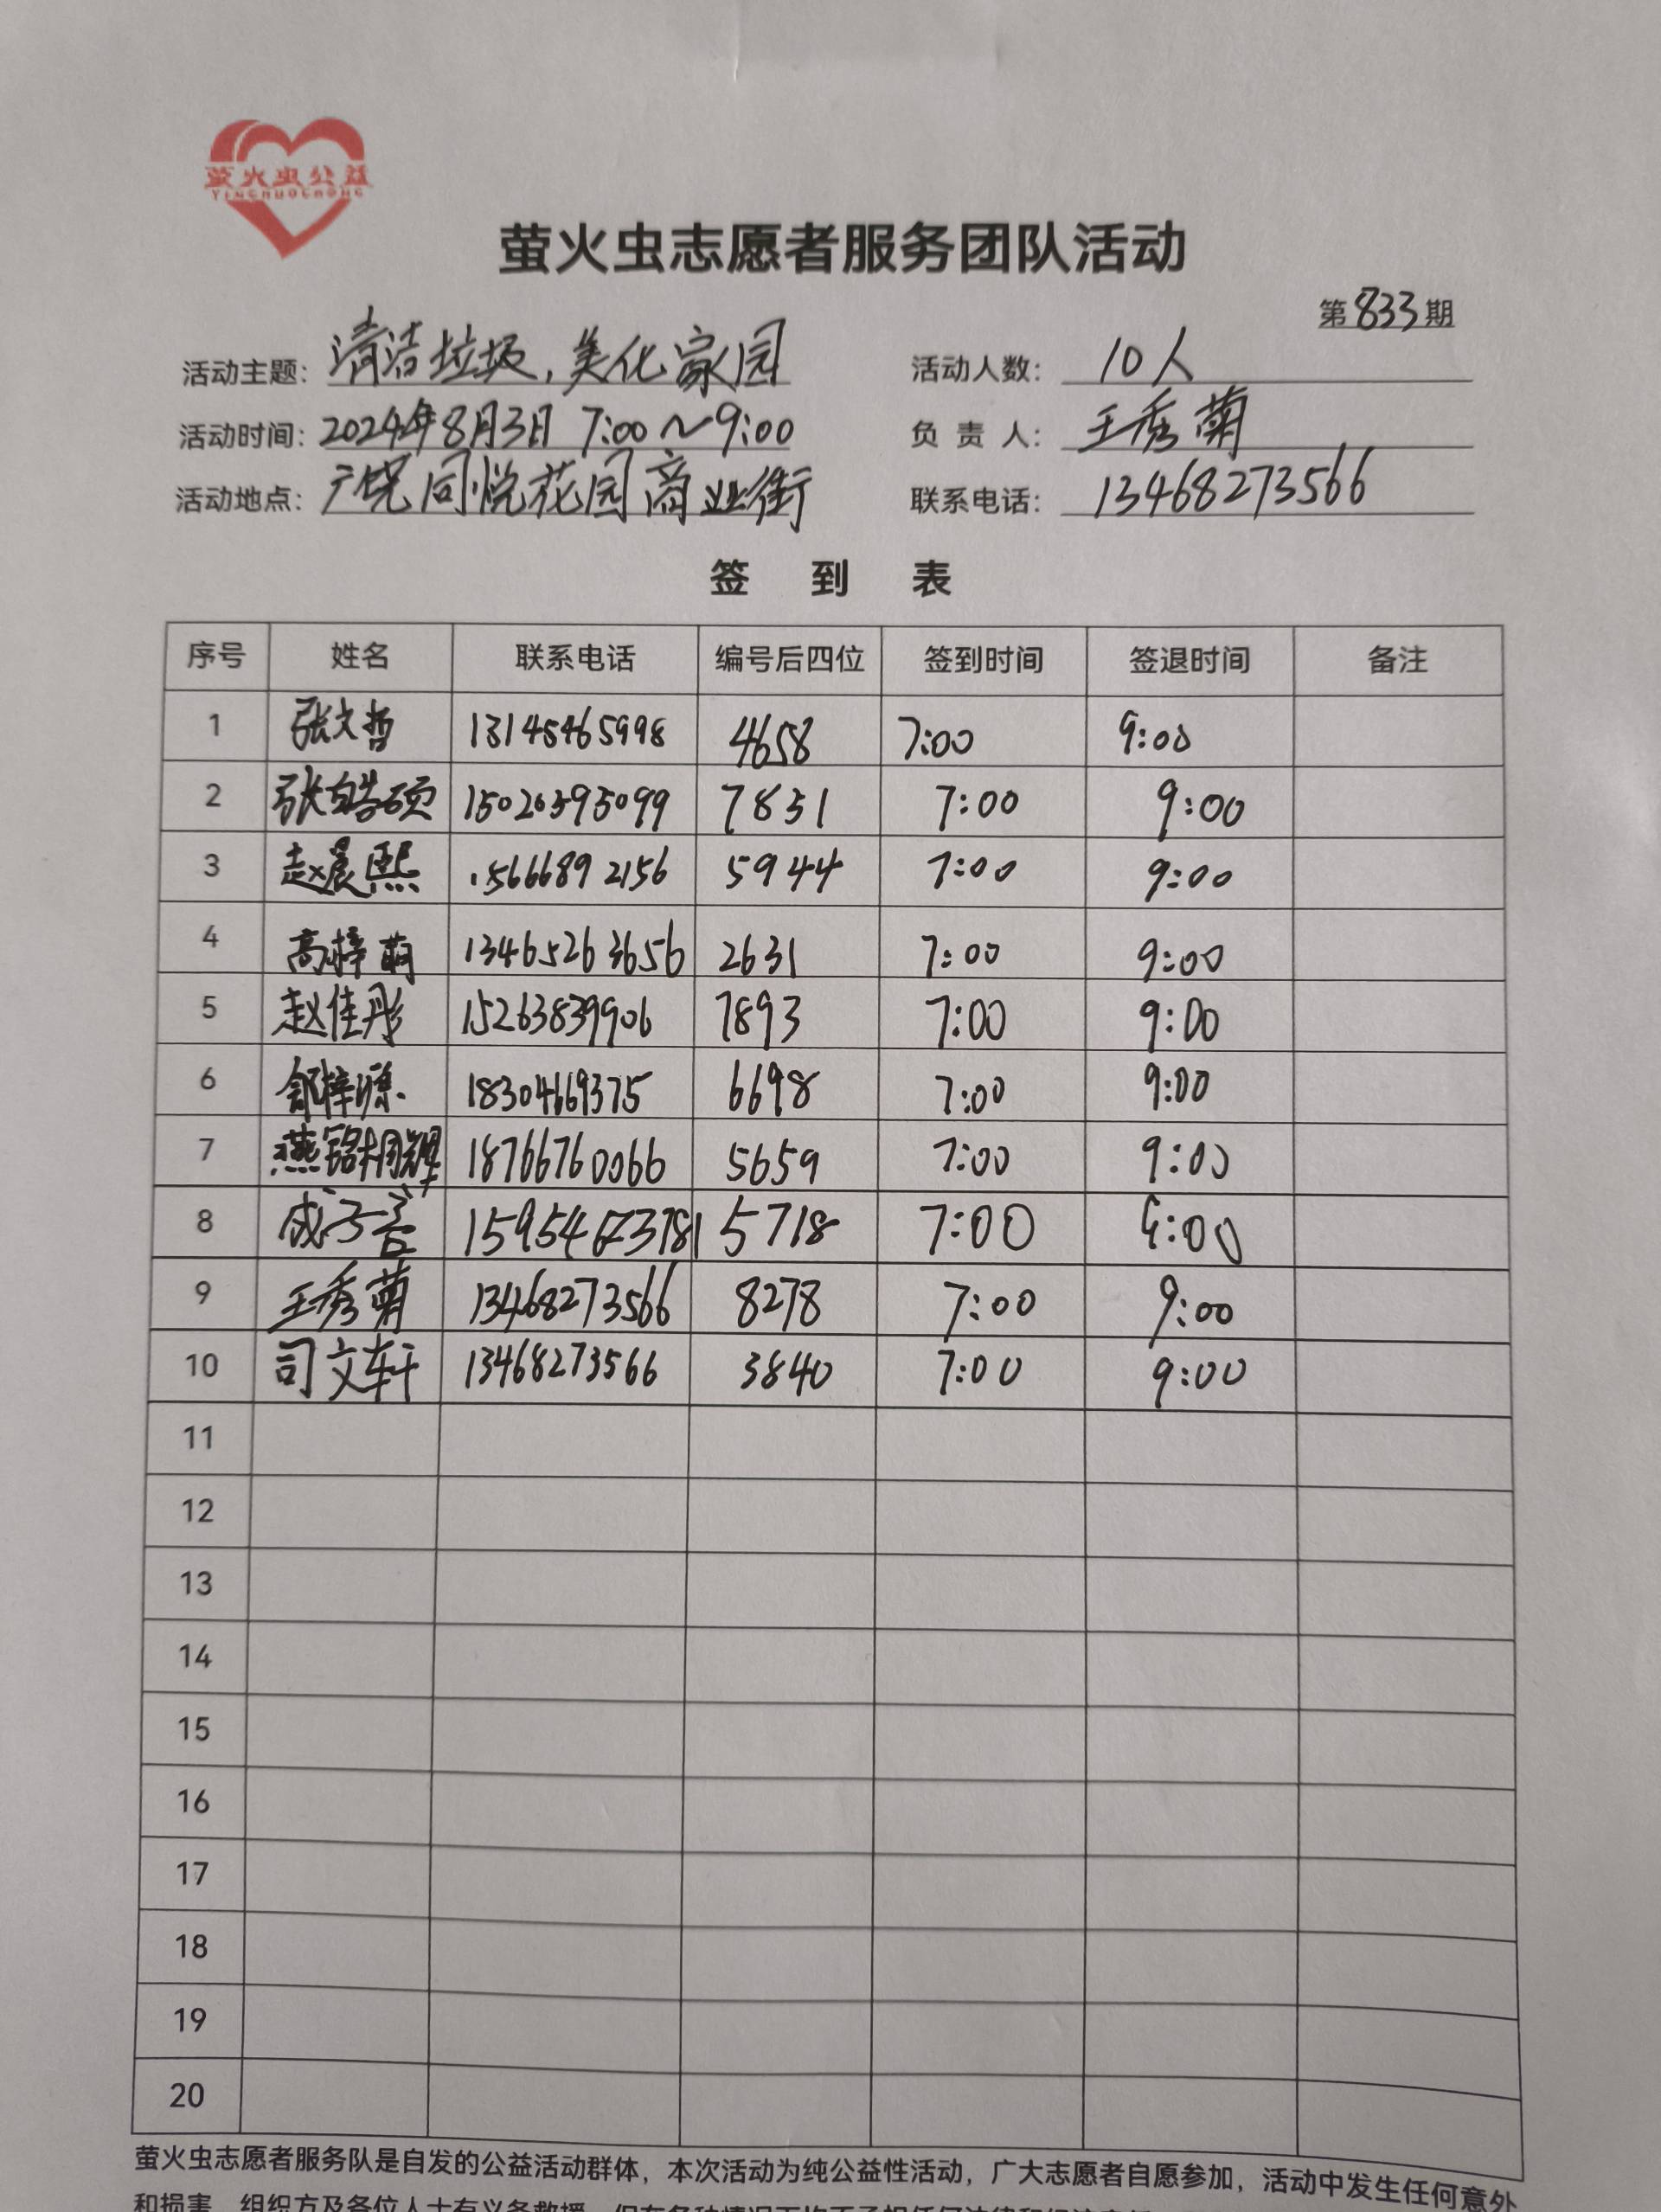 萤火虫公益
YINGHUOCHONG
萤火虫志愿者服务团队活动
第833期
活动主题：清洁垃圾，美化家园 活动人数：10人
活动时间：2024年8月3日 7:00～9:00 负责人：王秀菊
活动地点：广饶同悦花园商业街 联系电话：13468273566
签到表
序号 姓名 联系电话 编号后四位 签到时间 签退时间 备注
1 张文哲 13145465998 4658 7:00 9:00
2 张皓硕 15020395099 7831 7:00 9:00
3 赵晨熙 15666892156 5944 7:00 9:00
4 高梓萌 13465263656 2631 7:00 9:00
5 赵佳彤 15263839906 7893 7:00 9:00
6 梓源 18304669375 6698 7:00 9:00
7 燕铭 18766760066 5659 7:00 9:00
8 成子言 5718 7:00 9:00
9 王秀菊 13468273566 8278 7:00 9:00
10 司文轩 13468273566 3840 7:00 9:00
11
12
13
14
15
16
17
18
19
20
萤火虫志愿者服务队是自发的公益活动群体，本次活动为纯公益性活动，广大志愿者自愿参加，活动中发生任何意外
和损害，组织方及各位人士有义务救援，但在各种情况下均不承担任何法律和经济责任